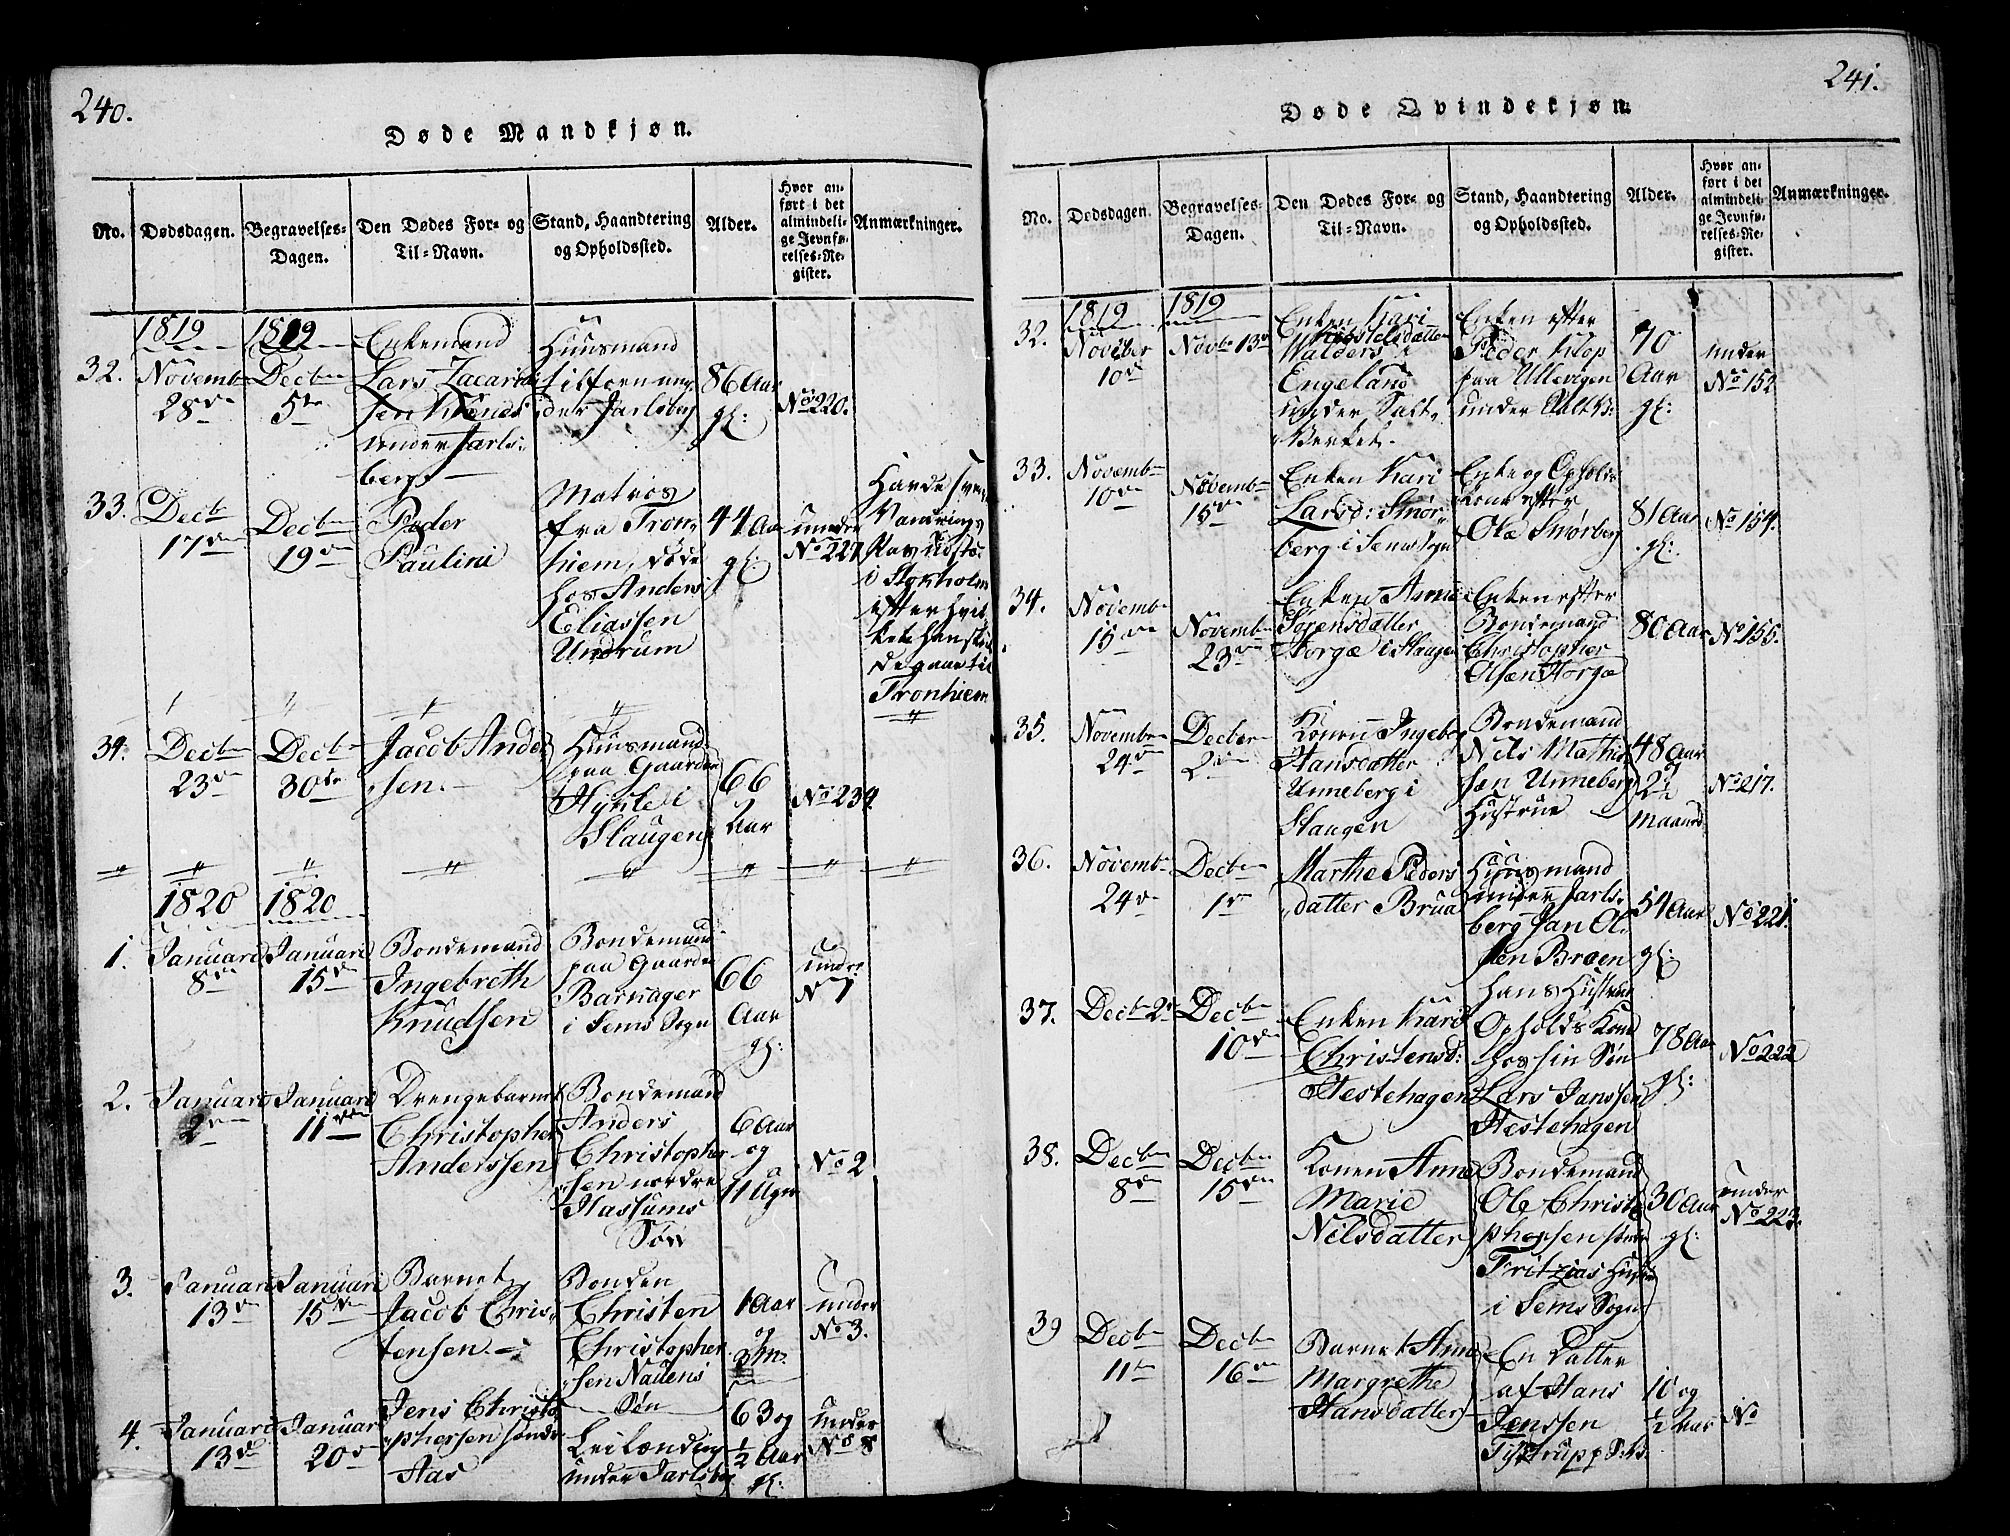 240.
Døde Mandkjøn.
No. Dødsdagen. Begravelses-Dagen. Den Dødes For- og Til-Navn. Stand, Haandtering og Opholdssted. Alder. Hvor anført i det almindelige Jevnførelses-Register. Anmærkninger.
1819 1819
32.
Novembr
28de
Decbr
5te
Enkemand
Lars Zacaria
sen
under Jarls-
berg
Huusmand
under Jarlsberg
86 Aar
gl:
No 220.
33.
Decb
17de
Decbr
19de
Peder
Paulini
Matros
fra Tron,
hiem, døde
hos Anders
Eliassen
Undrum
44 Aar
gl:
under
No 227
Havde
Vandrings
i Stokholm
efter hvil,
ket han skul
de gaae til
Tronhiem
34.
Decbr
23de
Decbr
30te
Jacob Ander
sen.
Huusmand
paa Gaarden
i
Slaugen
66
Aar
No 234.
1820 1820
1.
Januari
8de
Januari
15de
Bondemand
Ingebreth
Knudsen
Bondemand
paa Gaarden
Barnager
i Sems Sogn
66
Aar
gl:
under
No 1
2.
Januari
2den
Januari
11te
Drengebarnet
Christopher
Anderssen
Bondemand
Anders
Christopher
sen nordre
Hassums
Søn
6 Aar
og
11 Uger
No 2
3.
Januari
13de
Januari
15de
Barnet
Jacob Chris,
tensen.
Bonden
Christen
Christopher
sen Nauens
Søn
1 Aar
og
3 M.
under
No 3.
4.
Januari
13de
Januar
20de
Jens Christo
phersen søndre
Aas
Leilænding
under Jarlsberg
63 og
1/2 Aar
gl:
under
No 8
241.
Døde Qvindekjøn.
No. Dødsdagen. Begravelses-Dagen. Den Dødes For- og Til-Navn. Stand, Haandtering og Opholdssted. Alder. Hvor anført i det almindelige Jevnførelses-Register. Anmærkninger.
1819 1819
32.
Novbr
10de
Novbr 13de
Enken Kari
Engeland
under Salt,
Verket.
Enken efter
Peder
paa Ullevigen
under
70
Aar
gl:
under
No 152
33.
Novembr
10de
Novembr
15de
Enken Kari
Larsd: Smør,
berg i Sems Sogn
Enke og Opholds
kone efter
Ole Smørberg
81 Aar
gl:
No 154.
34.
Novembr
15de
Novembr
23de
Enken Anne
Sørensdatter
Horgæ i Slaugen
Enken efter
Bondemand
Christopher
Olsen Horgæ
80 Aar
No 155.
35.
Novembr
24de
Decber
2den
Konen Ingebor
Hansdatter
Unneberg i
Slaugen
Bondemand
Nils Mathis
sen Unneberg
Hustrue
48 Aar
og
2
Maaned
No 217.
36.
Novembr
24de
Decbr
1ste
Marthe Peders
datter Brua
Huusmand
under Jarls-
berg Jan Ol.
sen Bråen
hans Hustrue
54 Aar
gl:
No 221.
37.
Decbr 2den
Decbr
10de
Enken Kari
Christensd:
Hestehagen
Opholds Kone
hos sin Søn
Lars Janssen
Hestehagen
78 Aar
gl:
No 222
38.
Decbr
8de
Decbr
15de
Konen Anne
Marie
Nilsdatter
Bondemand
Ole Christo
phersen
Fritzøas Hustrue
i Sems Sogn
30 Aar
gl:
under
No 223.
39
Decbr
11te
Decbr
16de
Barnet Anne
Margrethe
Hansdatter
En Datter
af Hans
Jenssen
10 og
1/2 Aar
No